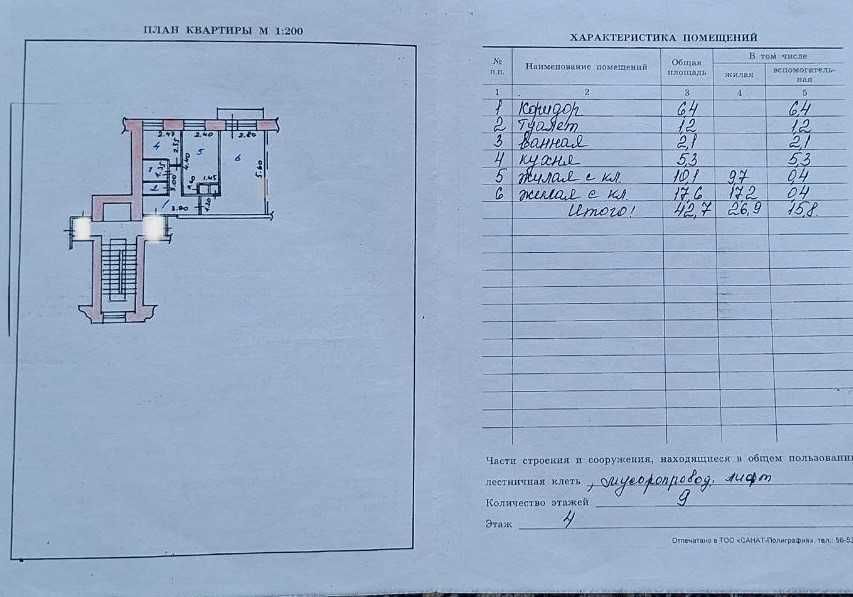 ПЛАН КВАРТИРЫ М 1:200
2.47 2.40 2.80
4 5 6
5.60
1.45
3.80
1
ХАРАКТЕРИСТИКА ПОМЕЩЕНИЙ
№ п.п. Наименование помещений Общая площадь В том числе
жилая вспомогатель-ная
1 2 3 4 5
1 Коридор 6,4 6,4
2 Туалет 1,2 1,2
3 Ванная 2,1 2,1
4 Кухня 5,3 5,3
5 Жилая с кл 10,1 9,7 0,4
6 Жилая с кл 17,6 17,2 0,4
Итого! 42,7 26,9 15,8
Части строения и сооружения, находящиеся в общем пользовани
лестничная клеть, мусоропровод, лифт
Количество этажей 9
Этаж 4
Отпечатано в ТОО «САНАТ-Полиграфия», тел.: 56-5